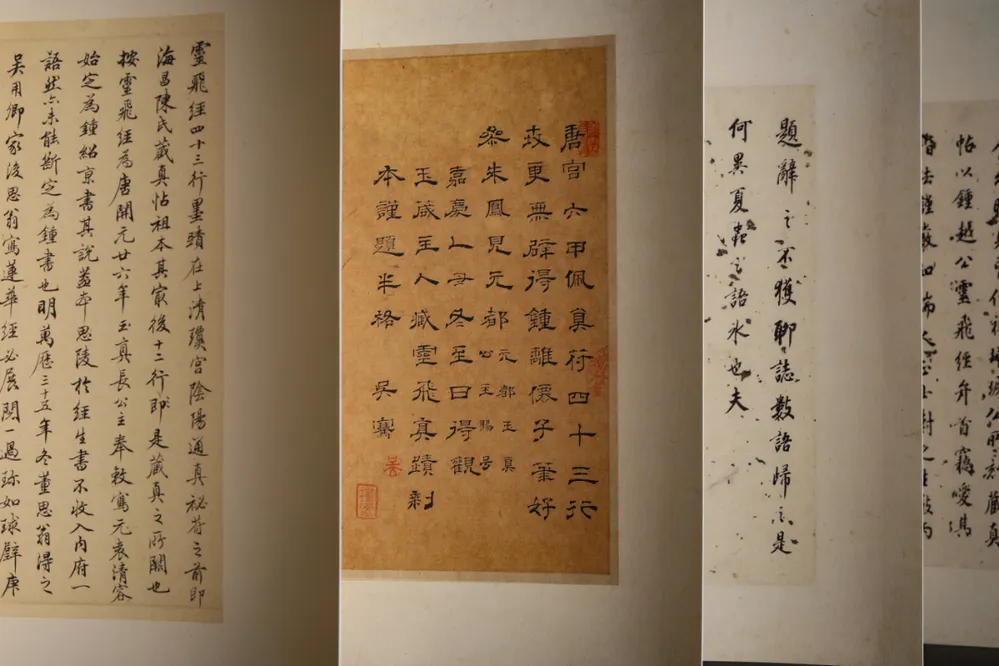 靈飛經四十三行墨蹟在上清瓊宮陰陽通真秘符之前即
海昌陳氏藏真帖祖本其最後十二行即是藏真之所闕也
按靈飛經為唐開元廿六年玉真長公主奉敕寫元袁清容
始定為鍾紹京書其說蓋本思陵於經生書不收入內府一
語然亦未能斷定為鍾書也明萬歷三十五年冬董思翁得之
吳用卿家後思翁寫蓮華經必展閱一過珍如球璧庚
唐宮六甲佩真符四十三行
更無得鍾離子筆好
朱鳳見元都 元都玉真公主賜号
嘉慶乙丑冬至日得觀
玉主人藏靈飛真蹟剩
本謹題半格 吳騫
題辭之不獲聊誌數語歸之是
何異夏蟲之語冰也夫
藏真
帖以鍾越公靈飛經弁首竊